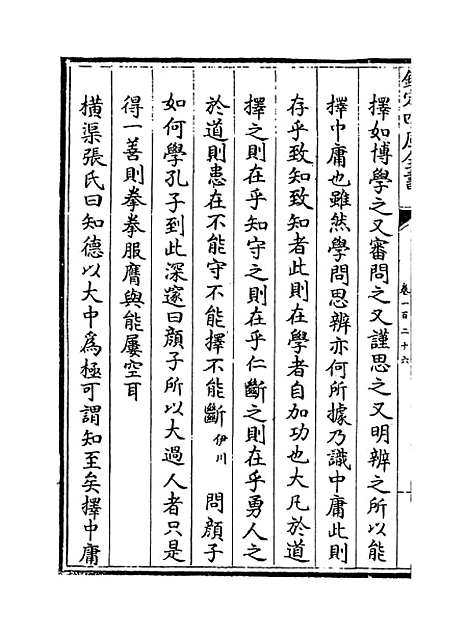 欽定四庫全書
卷一百二十六
擇如博學之又審問之又謹思之又明辨之所以能
擇中庸也雖然學問思辨亦何所據乃識中庸此則
存乎致知致知者此則在學者自加功也大凡於道
擇之則在乎知守之則在乎仁斷之則在乎勇人之
於道則患在不能守不能擇不能斷 伊川 問顔子
如何學孔子到此深邃曰顔子所以大過人者只是
得一善則拳拳服膺與能屢空耳
橫渠張氏曰知德以大中爲極可謂知至矣擇中庸